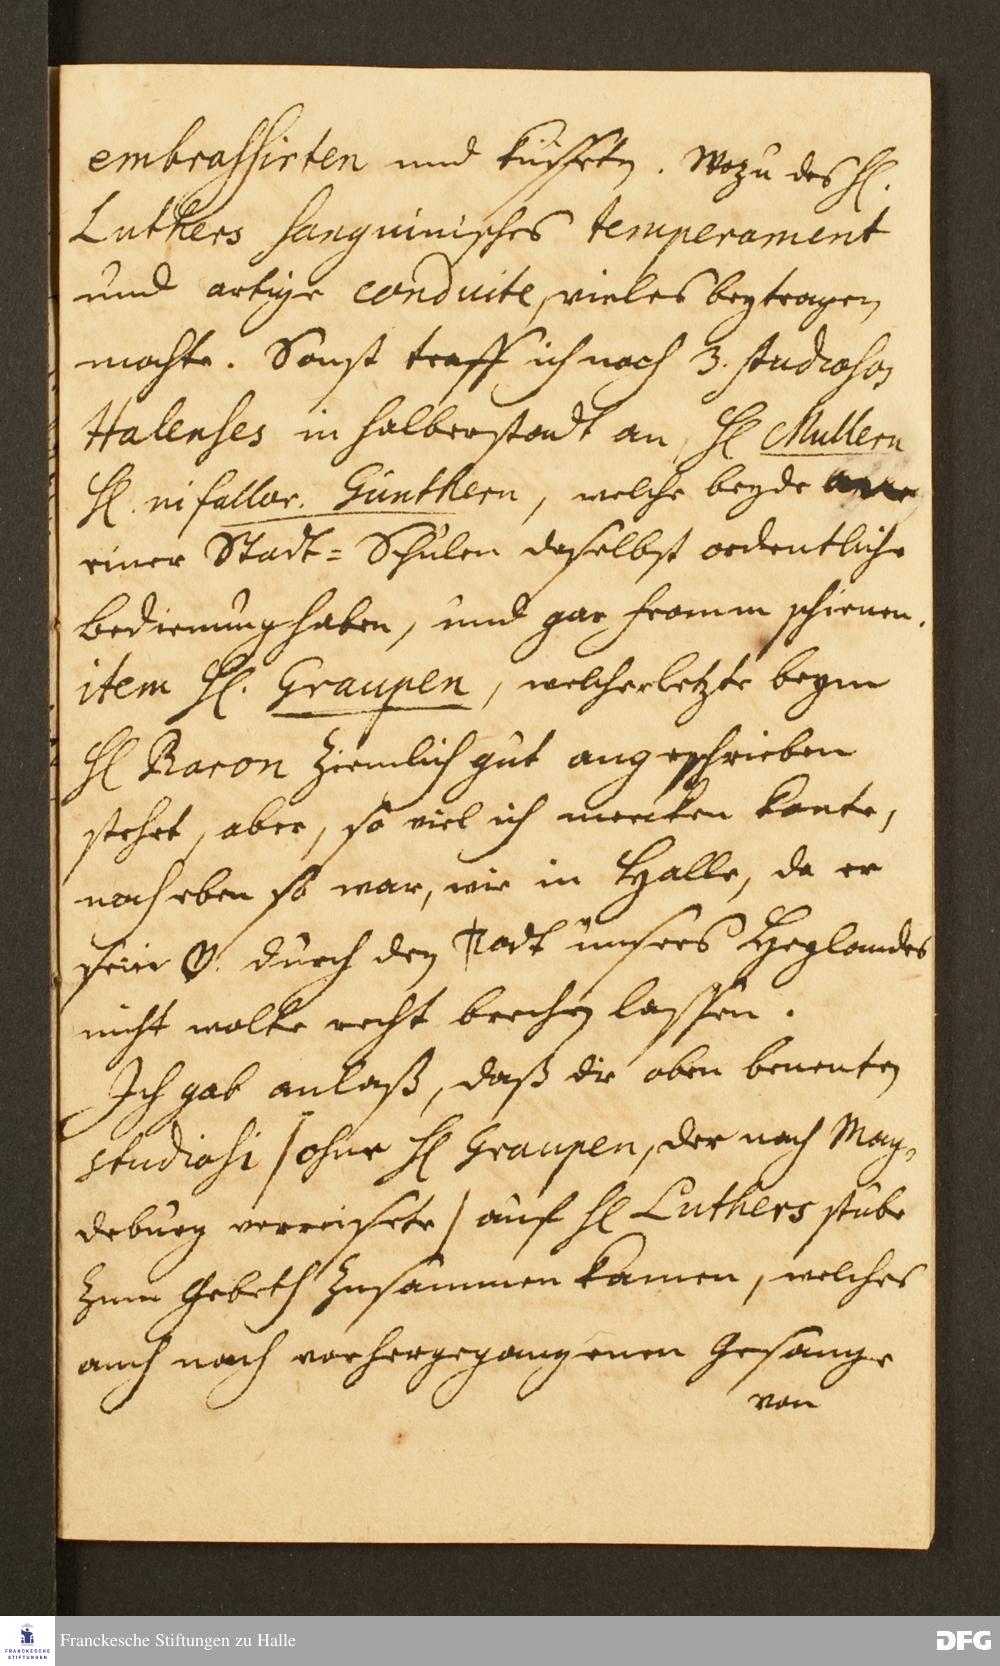 embrassirten und küsseten. Wozu des H.
Luthers sanguinisches temperament
und artige conduite, vieles beytragen
mochte. Sonst traff ich noch 3. studiosos
Halenses in Halberstadt an, H Mullern
H. ni fallor. Günthern, welche beyde
einer Stadt=Schulen daselbst ordentliche
Bedienung haben, und gar fromm schienen.
item H. Graupen, welcher letzte beym
H Baron ziemlich gut angeschrieben
stehet, aber, so viel ich mercken konte,
noch eben so war, wie in Halle, da er
sein ♡. durch den Todt unsers Heylandes
nicht wolte recht brechen lassen.
Ich gab anlaß, daß die oben benenten
studiosi / ohne H Graupen, der nach Mag-
deburg verreisete / auf H Luthers stube
zum Gebeth zusammen kamen, welches
auch nach vorhergegangenen Gesange
von
Franckesche Stiftungen zu Halle
FRANCKESCHE
STIFTUNGEN
DFG